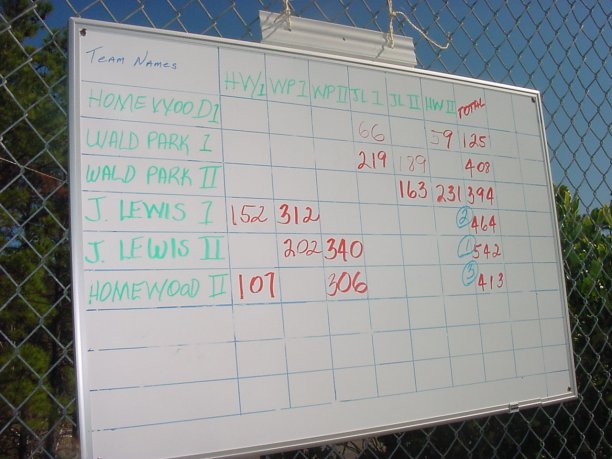 TEAM NAMES HW1 WP I WP II JL I JL II HW II TOTAL
HOMEWOOD I 66 59 125
WALD PARK I 219 189 408
WALD PARK II 163 231 394
J. LEWIS I 152 312 2 464
J. LEWIS II 202 340 1 542
HOMEWOOD II 107 306 3 413